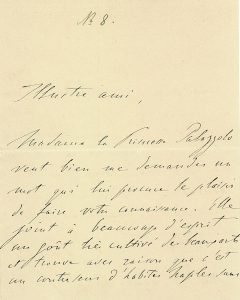 No. 8.
Illustre ami,
Madame la Princesse Palazzolo
veut bien me demander un
mot qui lui procure le plaisir
de faire votre connaissance. Elle
joint à beaucoup d'esprit
un goût très cultivé des beaux arts
et trouve avec raison que c'est
un d'habiter Naples sans